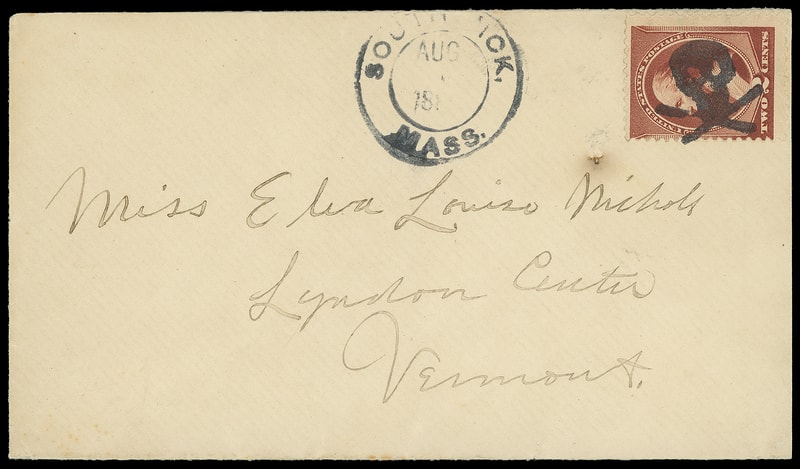 SOUTHWICK,
AUG
18
MASS.
UNITED STATES POSTAGE
TWO 2 CENTS
Miss Elva Louise Nichols
Lyndon Center
Vermont.